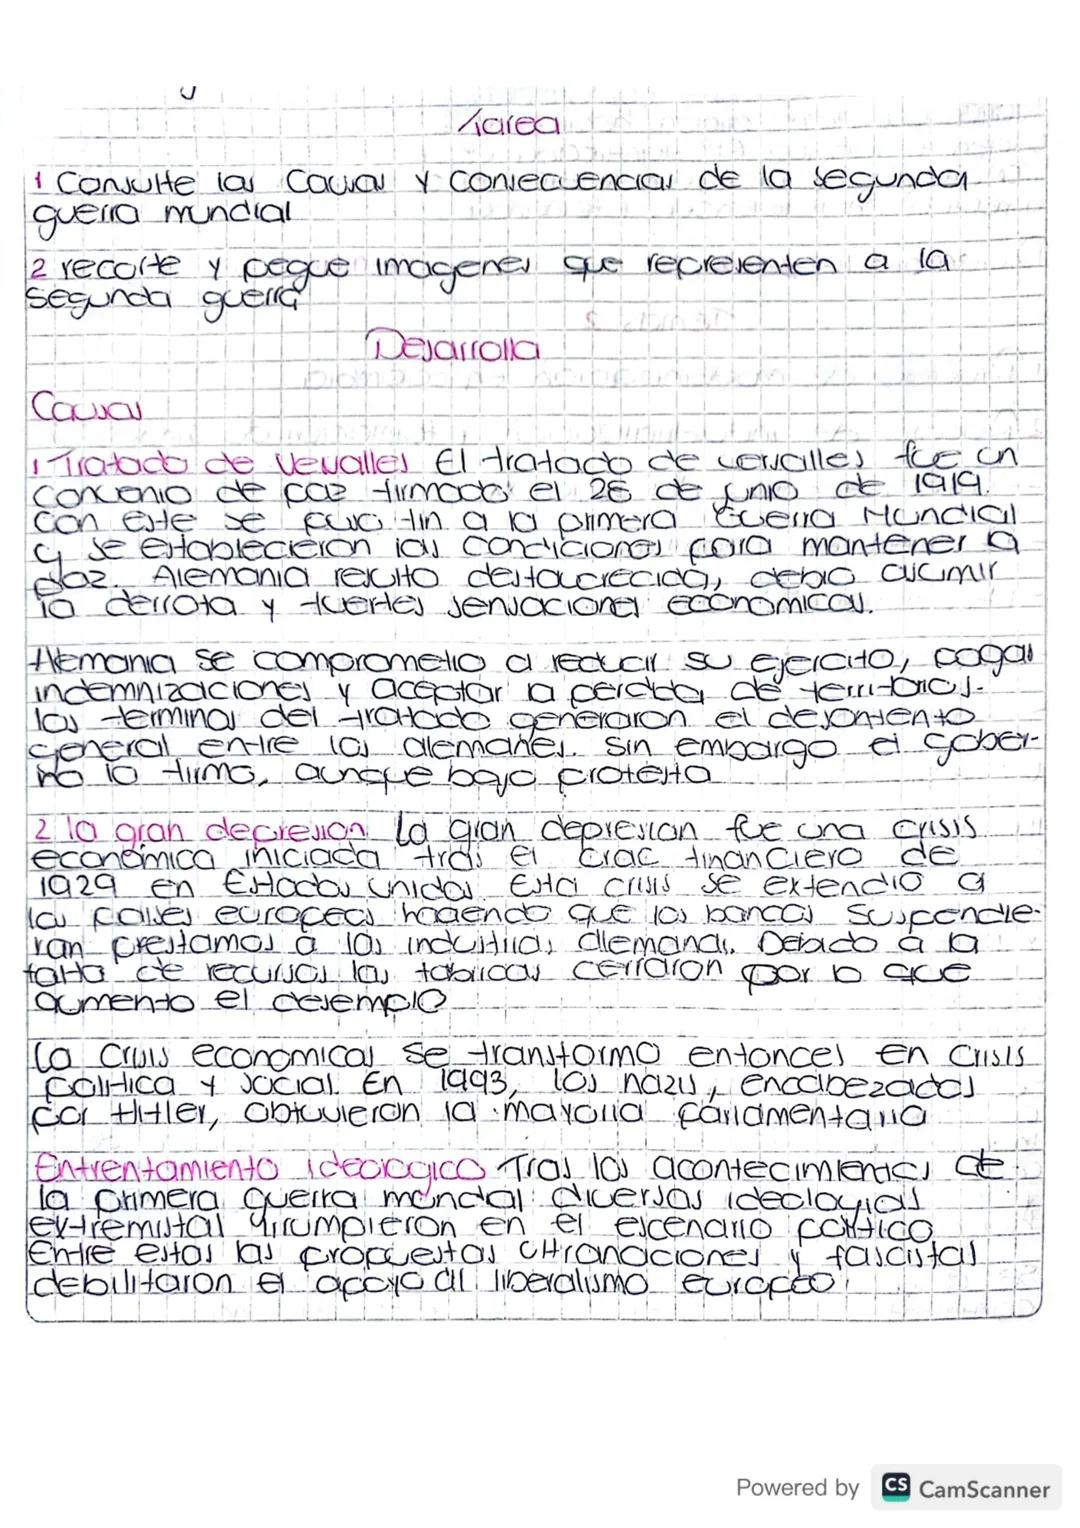 Tarea
1 Consulte las Causas y Consecuencias de la segunda
guerra mundial
2 recorte y pegue imagenes que representen a la
segunda guerra
Desarrollo
Causas
1 Tratado de Versalles El tratado de versalles fue un
convenio de paz firmado el 28 de junio de 1919.
Con este se puso fin a la primera Guerra Mundial
y se establecieron las condiciones para mantener la
paz. Alemania resulto desfavorecida, debio asumir
la derrota y fuertes sensaciones economicas.
Alemania se comprometio a reducir su ejercito, pagar
indemnizaciones y aceptar la perdida de territorios.
los terminos del tratado generaron el desontento
general entre los alemanes. Sin embargo el gober-
no lo firmo, aunque bajo protesta
2 la gran depresion La gran depresion fue una crisis
economica iniciada tras el crac financiero de
1929 en Estados unidos Esta crisis se extendio a
los paises europeos haciendo que los bancos suspendie-
ran prestamos a las industrias alemanas. Debido a la
falta de recursos las fabricas cerraron por lo que
aumento el desemplo
La crisis economicas se transformo entonces en crisis
politica y social. En 1993, los nazis, encabezados
por Hitler, obtuvieron la mayoria parlamentaria
Enfrentamiento ideologico Tras los acontecimientos de
la primera guerra mundial diversas ideologias
extremistas irrumpieron en el escenario politico
Entre estas las propuestas ultranaciones y fascistas
debilitaron el apoyo al liberalismo europeo.
Powered by CS CamScanner